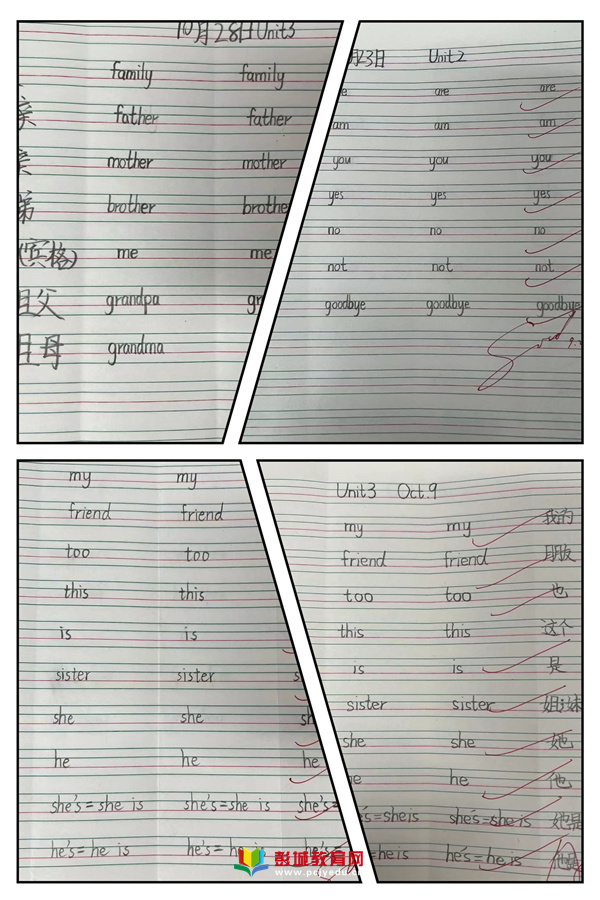 10月28日Unit3
family family
亲 father father
亲 mother mother
弟 brother brothe
(宾格) me me
祖父 grandpa gr
祖母 grandma
月23日 Unit2
e are are
am am am
you you you
yes yes yes
no no no
not not not
goodbye goodbye goodbye
my my
friend friend
too too
this this
is is
sister sister s
she she sh
he he he
she's=she is she's=she is she's=
he's=he is he's=he is he's=
Unit3 Oct.9
my my 我的
friend friend 朋友
too too 也
this this 这个
is is 是
sister sister 姐妹
she she 她
he he 他
e's=she is she's=she is 她是
=he is he's=he is 他是
彭城教育网
www.pcjyedu.com